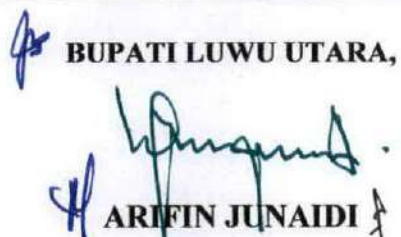 BUPATI LUWU UTARA,
ARIFIN JUNAIDI